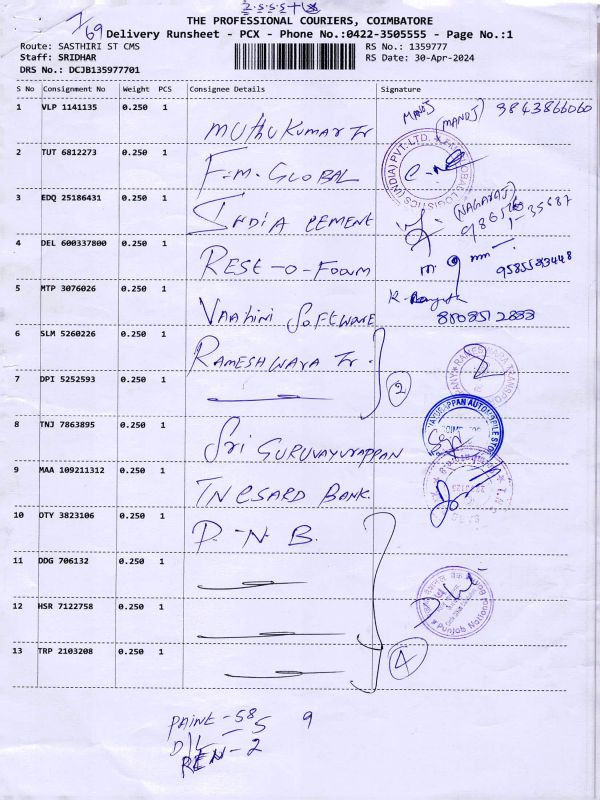 7/69
THE PROFESSIONAL COURIERS, COIMBATORE
Delivery Runsheet - PCX - Phone No.:0422-3505555 - Page No.:1
Route: SASTHIRI ST CMS RS No.: 1359777
Staff: SRIDHAR RS Date: 30-Apr-2024
DRS No.: DCJB135977701
S No Consignment No Weight PCS Consignee Details Signature
1 VLP 1141135 0.250 1 MUTHUKUMAR Tr MANOJ (MANOJ) 9843866060
2 TUT 6812273 0.250 1 F.M. GLOBAL
3 EDQ 25186431 0.250 1 INDIA CEMENT (NAGARAJ)
4 DEL 600337800 0.250 1 REST-O-FOAM
5 MTP 3076026 0.250 1 VAAHINI SOFTWARE
6 SLM 5260226 0.250 1 RAMESHWARA Tr.
7 DPI 5252593 0.250 1 2
8 TNJ 7863895 0.250 1 Sri GURUVAYURAPPAN
9 MAA 109211312 0.250 1 TNCSARD BANK
10 DTY 3823106 0.250 1 P.N.B.
11 DDG 706132 0.250 1
12 HSR 7122758 0.250 1 Punjab National
13 TRP 2103208 0.250 1 4
PAINE-58 9
D/L - 5
REN-2